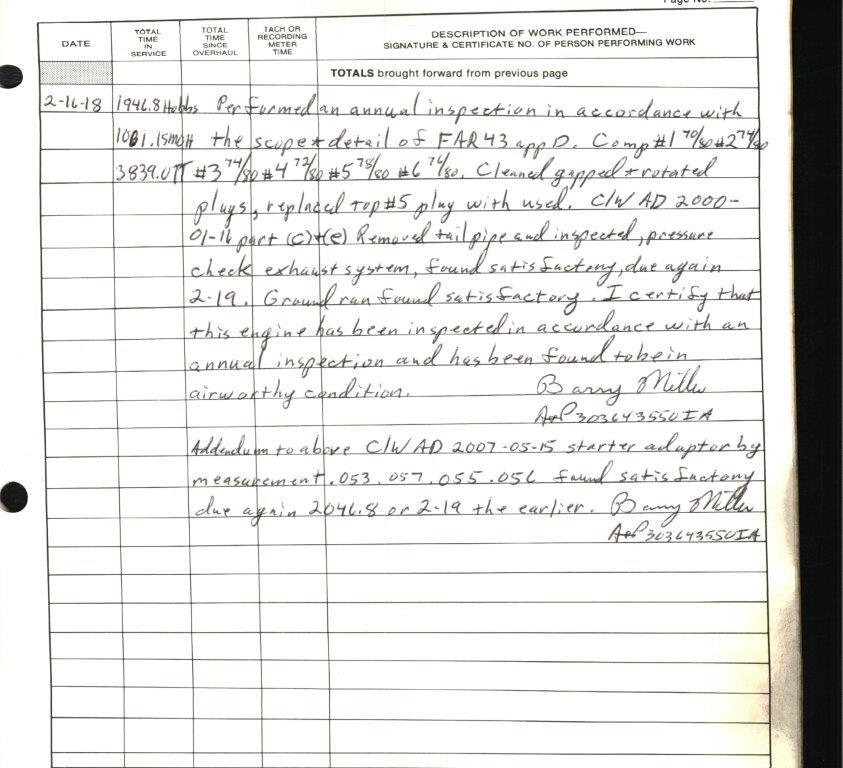 Page No.
DATE
TOTAL TIME IN SERVICE
TOTAL TIME SINCE OVERHAUL
TACH OR RECORDING METER TIME
DESCRIPTION OF WORK PERFORMED—
SIGNATURE & CERTIFICATE NO. OF PERSON PERFORMING WORK
TOTALS brought forward from previous page
2-16-18 1946.8 Hobbs Performed an annual inspection in accordance with
1081.1SMOH the scope + detail of FAR 43 app D. Comp #1 70/80 #2 74/80
3839.0TT #3 74/80 #4 72/80 #5 78/80 #6 76/80. Cleaned gapped + rotated
plugs, replaced top #5 plug with used. C/W AD 2000-
01-16 part (c)+(e) Removed tail pipe and inspected, pressure
check exhaust system, found satisfactory, due again
2-19. Ground ran found satisfactory. I certify that
this engine has been inspected in accordance with an
annual inspection and has been found to be in
airworthy condition. Barry Miller
A+P 303643550IA
Addendum to above C/W AD 2007-05-15 starter adaptor by
measurement .053 .057 .055 .056 found satisfactory
due again 2046.8 or 2-19 the earlier. Barry Miller
A+P 303643550IA